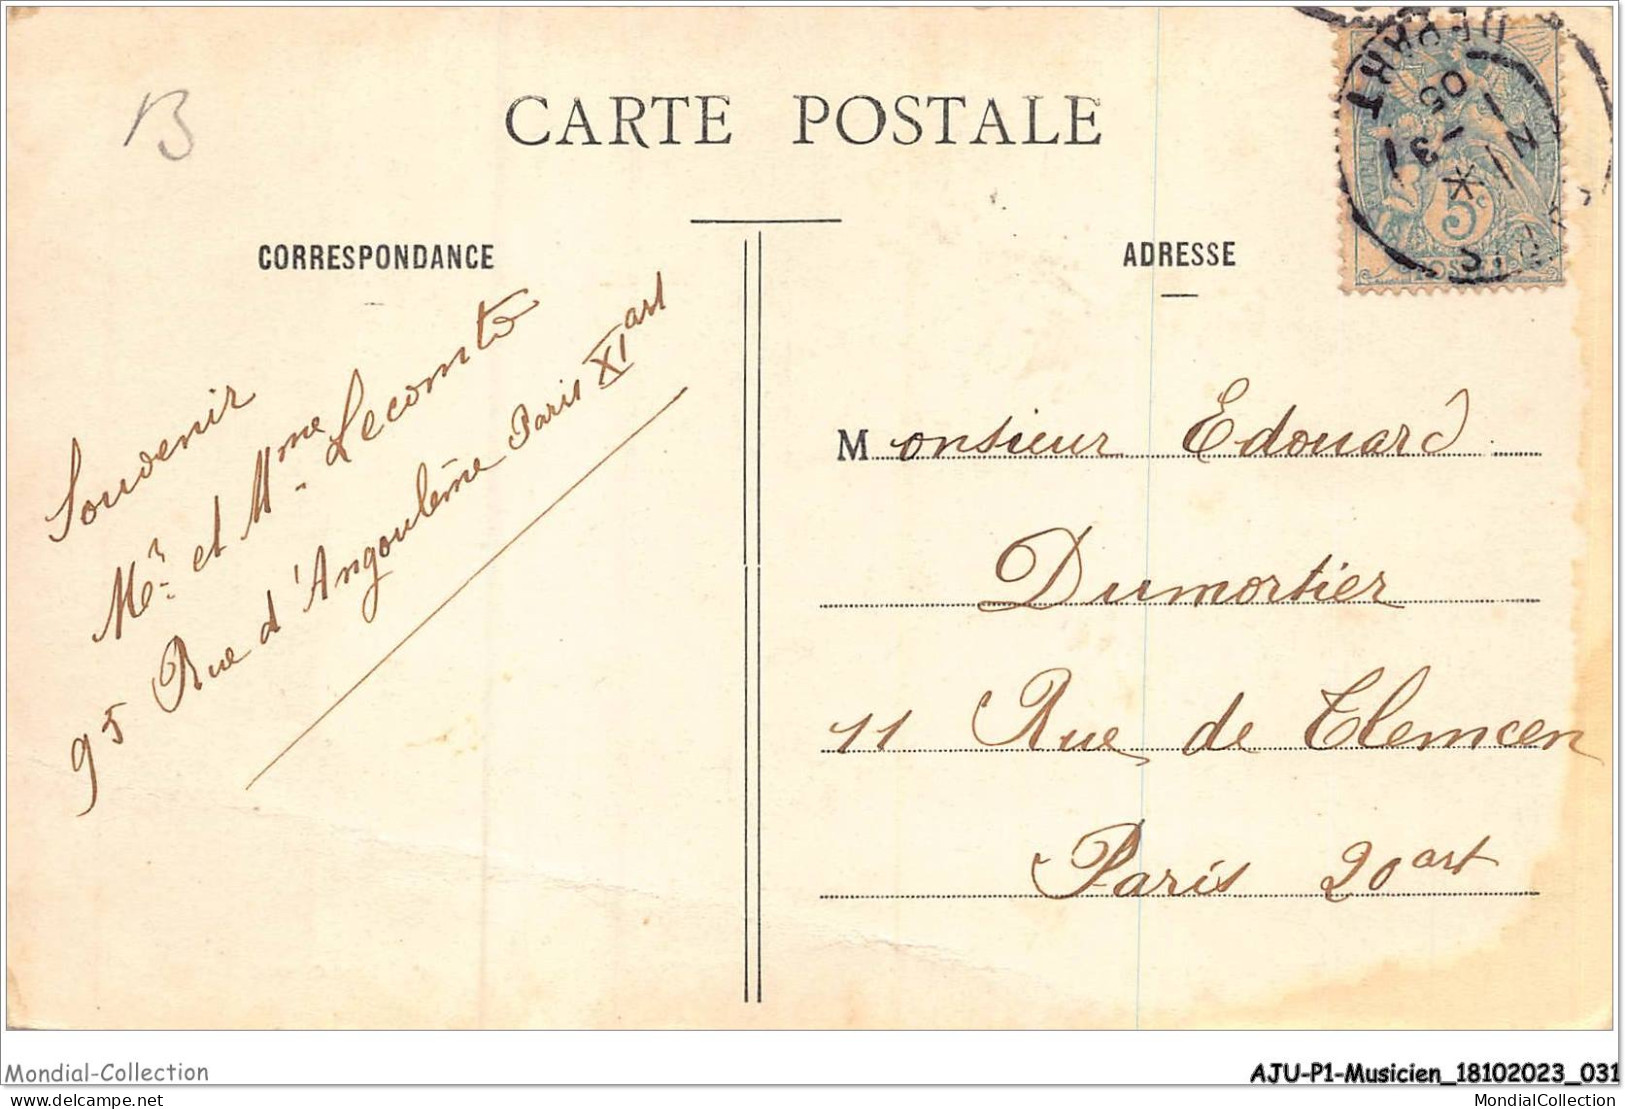 B
CARTE POSTALE
CORRESPONDANCE
ADRESSE
DEPART
3
05
5c
Souvenir
Mr. et Mme. Lecomte
95 Rue d'Angoulême Paris XI art
Monsieur Edouard
Dumortier
11 Rue de Tlemcen
Paris 20 art
Mondial-Collection
AJU-P1-Musicien_18102023_031
delcampe.net
MondialCollection